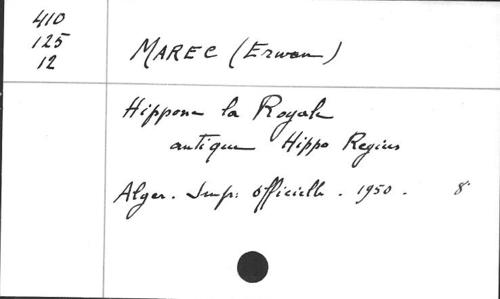 410
125
12
MAREC (Erwan)
Hippone la Royale
antique Hippo Regius
Alger. Imp. officielle. 1950. 8°